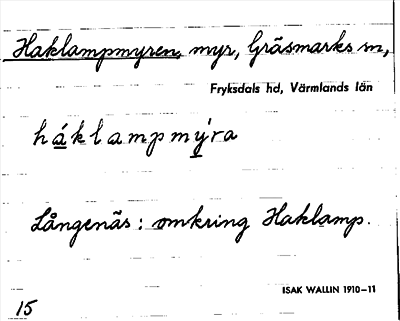 Haklampmyren, myr, Gräsmarks sn,
Fryksdals hd, Värmlands län
háklampmýra
Långenäs: omkring Haklamp.
ISAK WALLIN 1910–11
15